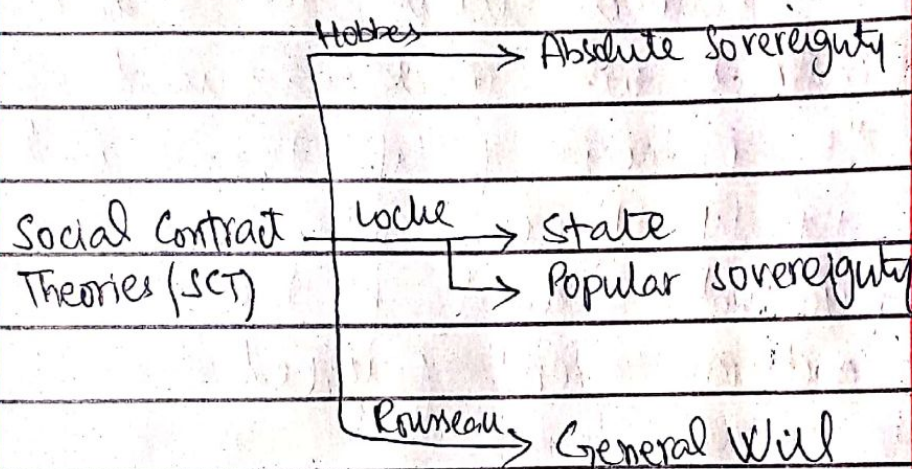 Hobbes
Absolute Sovereignty
Social Contract
Theories (SCT)
Locke
State
Popular sovereignty
Rousseau
General Will